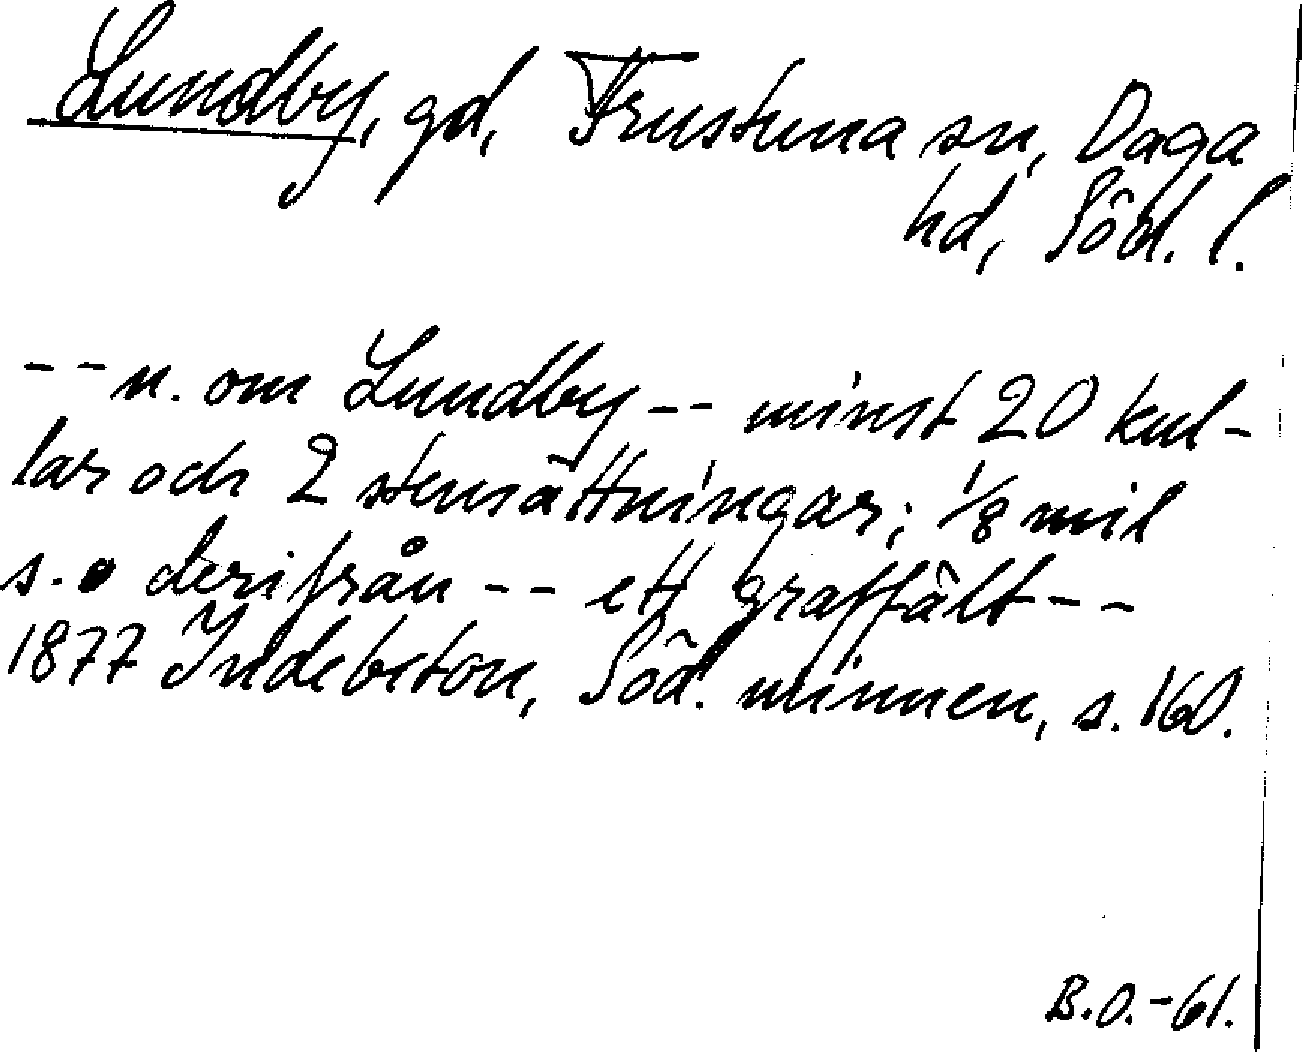 Lundby, gd, Frustuna sn, Daga
hd, Söd. l.
-- n. om Lundby -- minst 20 kul-
lar och 2 stensättningar; 1/8 mil
s.o derifrån -- ett graffält --
1877 Indebetou, Söd. minnen, s. 160.
B.O.-61.